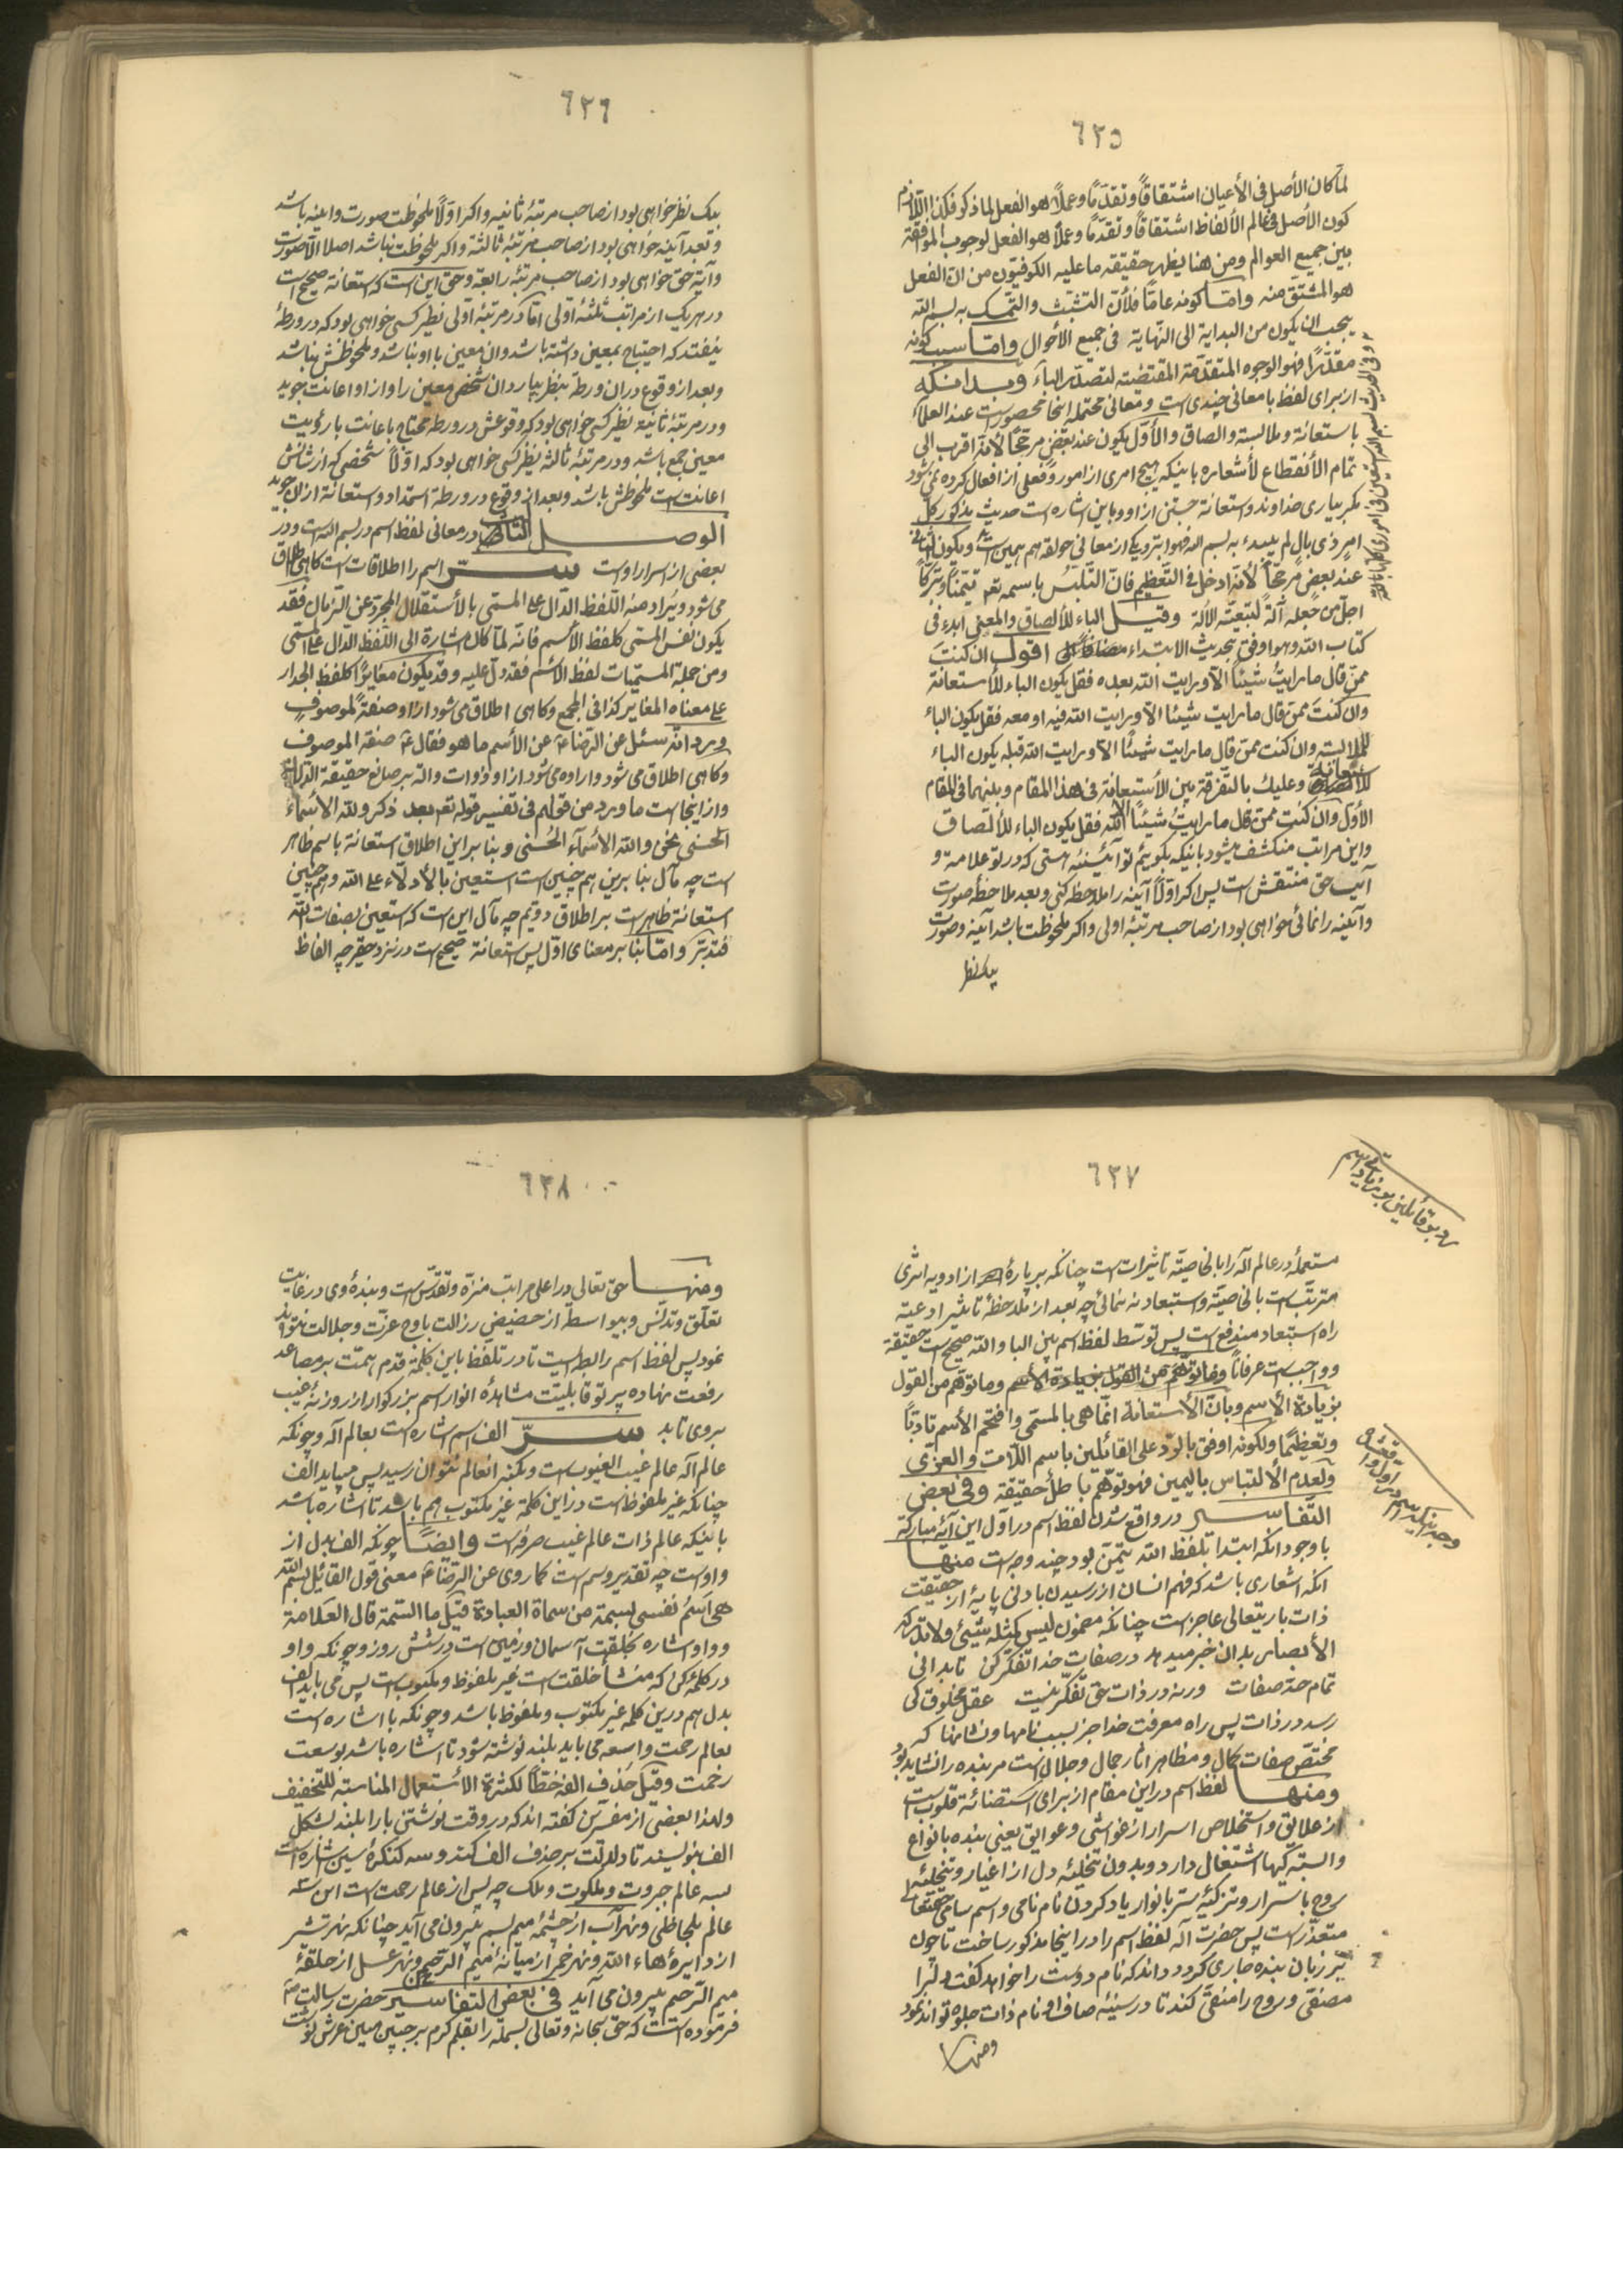 ٦٣٥
لما کان الأصل فی الأعیان اشتقاقاً و تقدّماً و عملاً هو الفعل لما ذکر فکذا اللازم
کون الأصل فی عالم الألفاظ اشتقاقاً و تقدّماً و عملاً هو الفعل لوجوب الموافقة
بین جمیع العوالم ومن هنا یظهر حقیقة ما علیه الکوفیّون من انّ الفعل
هو المشتق منه وامّا کونه عامّاً فلأنّ التشبّث والتمسّک به بسم الله
یجب ان یکون من البدایة الی النهایة فی جمیع الأحوال وامّا سبب کونه
مقدّراً فهو الوجوه المتقدّمة المقتضیة لتصدّر الباء وبدانکه
از برای لفظ با معانی چندی است و معانی محتمله اینجا محصور است عند العلماء
باستعانة وملابسة والصاق والأوّل یکون عند بعض مرجّحاً لأنّه اقرب الی
تمام الأنقطاع لأشعاره باینکه هیچ امری از امور و فعلی از افعال کرده نمی شود
مکر بیاری خداوند و استعانة جستن از او و باین اشاره است حدیث مذکور کل
امر ذی بال لم یبدء به بسم الله فهو ابتر ویکی از معانی حولقه هم همین است ویکون الثانی
عند بعض مرجّحاً لأنّه ادخل فی التعظیم فانّ التلبّس باسمه تعم تیمّناً وتبرّکاً
اجلّ من جعله آلة لتبعیّة الآلة وقیل الباء للألصاق والمعنی ابدء فی
کتاب الله وهو اوفق بحدیث الابتداء اقول ان کنت
ممّن قال ما رایت شیئاً الّا ورایت الله بعده فقل یکون الباء للأستعانة
وان کنت ممّن قال ما رایت شیئا الّا ورایت الله فیه او معه فقل یکون الباء
للملابسة وان کنت ممّن قال ما رایت شیئاً الّا ورایت الله قبله یکون الباء
للأستعانة وعلیک بالتفرقة بین الأستعانة فی هذا المقام وبینهما فی المقام
الأوّل وان کنت ممّن قال ما رایت شیئاً الّا الله فقل یکون الباء للألصاق
واین مراتب منکشف میشود باینکه بکویئم تو آئینئه هستی که در تو علامة و
آیت حق منتقش است پس اکر اوّلاً آینه را ملاحظه کنی و بعد ملاحظه صورت
وآئینه را نمائی خواهی بود از صاحب مرتبئه اولی واکر ملحوظت باشد آئینه وصورت
بیک نظر
٦٣٦
بیک نظر خواهی بود از صاحب مرتبئه ثانیه واکر اوّلاً ملحوظت صورت و آینه باشد
و بعد آینه خواهی بود از صاحب مرتبئه ثالثه واکر ملحوظت نباشد اصلا الّا صورت
وآیه حق خواهی بود از صاحب مرتبئه رابعه وحق این است که استعانة صحیح است
در هر یک از مراتب ثلثئه اولی امّا در مرتبئه اولی نظیر کسی خواهی بود که در ورطهٔ
بیفتد که احتیاج بمعین داشته باشد وان معین با او نباشد وملحوظش نباشد
وبعد از وقوع در ان ورطه بنظر بیارد ان شخص معین را واز او اعانت جوید
ودر مرتبئه ثانیه نظیر کسی خواهی بود که وقوعش در ورطه محتاج باعانت با رؤیت
معین جمع باشد ودر مرتبئه ثالثه نظیر کسی خواهی بود که اوّلاً شخصی که از شأنش
اعانت است ملحوظش باشد وبعد از وقوع در ورطه استمداد واستعانة از ان جوید
الوصل الثانی در معانی لفظ اسم در بسم الله است ودر
بعضی از اسرار اوست سرّ اسم را اطلاقات است کاهی اطلاق
می شود ویراد منه اللفظ الدالّ علی المسمّی بالأستقلال المجرّد عن الزمان فقد
یکون نفس المسمّی کلفظ الأسم فانّه لمّا کان اشارة الی اللفظ الدال علی المسمّی
ومن جملة المسمّیات لفظ الأسم فقد دلّ علیه وقد یکون مغایراً کلفظ الجدار
علی معناه المغایر کذا فی المجمع وکاهی اطلاق می شود از او صفة لموصوف
ورد انّه سئل عن الرضاء عن الأسم ما هو فقال ع صفة الموصوف
وکاهی اطلاق می شود واراده می شود از او ذوات والّه بر صانع حقیقة الدلالة
واز اینجا است ما ورد من قولهم فی تفسیر قوله تعم بعد ذکر ولله الأسماء
الحسنی نحن والله الأسماء الحسنی وبنا بر این اطلاق استعانة باسم ظاهر
است چه مآل بنا برین هم چنین است استعین بالأدلّاء علی الله وهم چنین
استعانة ظاهر است بر اطلاق دوّیم چه مآل این است که استعین بصفات الله
فتدبّر وامّا بنا بر معنای اوّل پس استعانة صحیح است در نزد حقیر چه الفاظ
٦٣٧
مستعملهٔ در عالم اله را بالخاصیّة تاثیرات است چنانکه بر پارهٔ از ادویه اثری
مترتّب است بالخاصیّة واستبعاد نه نمائی چه بعد از ملاحظهٔ تاثیر ادعیة
راه استبعاد مندفع است پس توسّط لفظ اسم بین البا والله صحیح است حقیقة
وواجب است عرفاناً وما توهّم من القول
بزیادة الأسم وبانّ الأستعانة انّما هی بالمسمّی واقحم الأسم تادّباً
وتعظیماً ولکونه اوفق بالردّ علی القائلین باسم اللات والعزّی
ولعدم الألتباس بالیمین فهو توهّم باطل حقیقة وفی بعض
التفاسیر در واقع شدن لفظ اسم در اوّل این آیهٔ مبارکه
با وجود آنکه ابتدا بلفظ الله تیمّن بود چند وجه است منها
آنکه اشعاری باشد که فهم انسان از رسیدن بادنی پایهٔ از حقیقت
ذات باریتعالی عاجز است چنانکه مضمون لیس کمثله شیئ ولا تدرکه
الأبصار بدان خبر میدهد در صفات خدا تفکّر کن تا بدانی
تمام حدّ صفات ورنه در ذات حق تفکّر نیست عقل مخلوق کی
رسد در ذات پس راه معرفت خدا جز بسبب نامها ونشانها که
مختص صفات کمال ومظاهر اثار جمال وجلال است مر بنده را نشاید بود
ومنها لفظ اسم در این مقام از برای استضائهٔ قلوب است
از علایق واستخلاص اسرار از غواشی وعوایق یعنی بنده بانواع
وابستکیها اشتغال دارد وبدون تخلیئه دل از اغیار وتحلیئه
روح باسرار وتزکیئه ستر بانوار یاد کردن نام نامی واسم سامی حقتعالی
متعذّر است پس حضرت اله لفظ اسم را در اینجا مذکور ساخت تا چون
بر زبان بنده جاری کردد داند که نام دوست را خواهد کفت دل را
مصفّی وروح را منقّی کند تا در سینئه صاف او نام ذات جلوه تواند نمود
ومنها
٦٣٨
ومنها حق تعالی در اعلی مراتب منزّه وتقدّس است وبندهٔ وی در غایت
تعلّق وتدنّس وبیواسطه از حضیض رذالت باوج عزّت وجلالت نتواند
نمود پس لفظ اسم رابطه ایست تا در تلفظ باین کلمه قدم همّت بر مصاعد
رفعت نهاده پرتو قابلیّت مشاهدهٔ انوار اسم بزرکوار از روزنهٔ غیب
بر وی تابد سرّ الف اسم اشاره است بعالم اله وچونکه
عالم اله عالم غیب الغیوب است وبکنه انعالم نتوان رسید پس میباید الف
چنانکه غیر ملفوظ است در این کلمه غیر مکتوب هم باشد تا اشاره باشد
باینکه عالم ذات عالم غیب صرف است وایضاً چونکه الف بدل از
واو است چه تقدیر وسم است کما روی عن الرضاء معنی قول القائل بسم الله
هی اسم نفسی بسمة من سماة العبادة قیل ما السّمة قال العلامة
وواو اشاره بخلقت آسمان وزمین است در شش روز وچونکه واو
در کلمهٔ کن که منشأ خلقت است غیر ملفوظ ومکتوب است پس می باید الف
بدل هم درین کلمه غیر مکتوب وملفوظ باشد وچونکه با اشاره است
بعالم رحمت واسعه می باید بلند نوشته شود تا اشاره باشد بوسعت
رحمت وقیل حذف الفه خطّاً لکثرة الأستعمال المناسبة للتخفیف
ولهذا بعضی از مفسّرین کفته اند که در وقت نوشتن با را بلند لشکل
الف بنویسند تا دلالت بر حذف الف کند وسه کنکرهٔ سین اشاره است
بسه عالم جبروت وملکوت وملک چه پس از عالم رحمت است این سه
عالم بلحاظی ونهر آب از چشمهٔ میم بسم بیرون می آید چنانکه نهر شیر
از دایرهٔ هاء الله ونهر خمر از میانهٔ میم الرحمن ونهر عسل از حلقهٔ
میم الرحیم بیرون می آید فی بعض التفاسیر حضرت رسالت ص
فرموده است که حق سبحانه وتعالی بسمله را بقلم کرم بر جبین مبین عرش نوشت